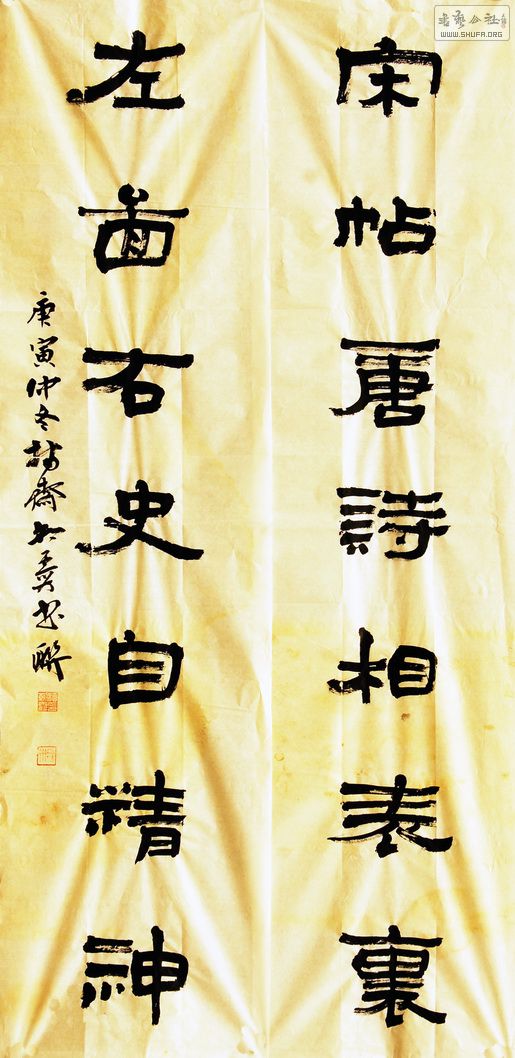 書藝公社
WWW.SHUFA.ORG
宋帖唐詩相表裏
左圖右史自精神
庚寅仲冬齋书聯